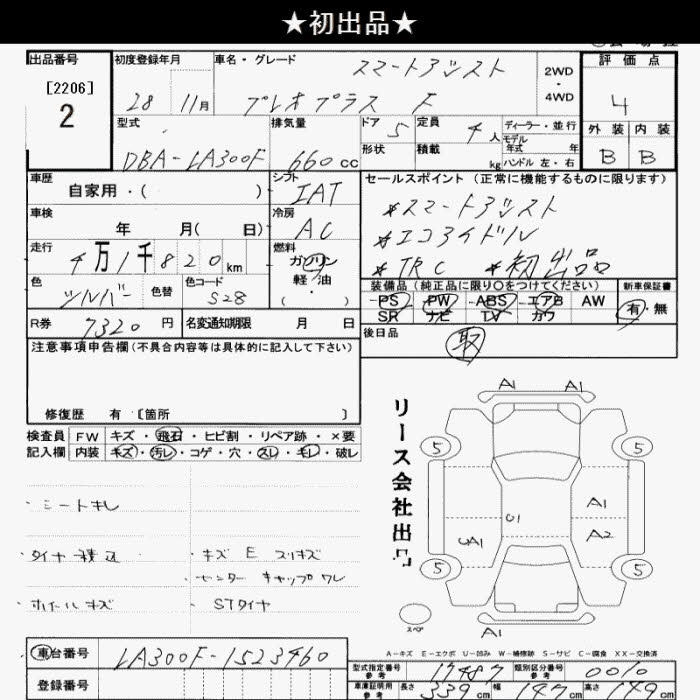 ★初出品★
出品番号
[2206]
2
初度登録年月
28 11月
車名・グレード
スマートアシスト
プレオプラス F
2WD
・
4WD
評価点
4
外装 内装
B B
型式
DBA-LA300F
排気量
660cc
ドア 5
形状
定員 4人
積載 kg
ディーラー・並行
モデル年式 年
ハンドル 左・右
車歴
自家用・( )
シフト
IAT
車検
年 月( 日)
冷房
AC
走行
4万1千820km
燃料
ガソリン
軽・油
( ・ )
色
シルバー
色替
色コード
S28
R券 7320円
名変通知期限 月 日
セールスポイント(正常に機能するものに限ります)
*スマートアシスト
*エコアイドル
*TRC *初出品
装備品(純正品に限り○をつけてください)
PS PW ABS エアB AW
SR ナビ TV カワ
新車保証書
有・無
後日品
取
注意事項申告欄(不具合内容等は具体的に記入して下さい)
修復歴 有〔箇所 〕
検査員
記入欄
FW キズ・飛石・ヒビ割・リペア跡・×要
内装 キズ・汚レ・コゲ・穴・スレ・キレ・破レ
・シートキレ
・タイヤ積込
・ホイールキズ
・キズ E スリキズ
・センターキャップワレ
・STタイヤ
リース会社出品
A1 A1
5 5
A1
U1
UA1 A2
5 5
スペア
A1
A-キズ E-エクボ U-凹み W-補修跡 S-サビ C-腐食 XX-交換済
車台番号 LA300F-1523460
登録番号
型式指定番号
参考
17487
類別区分番号
参考
0010
車庫証明用
参考
長さ 339cm 幅 147cm 高さ 149cm